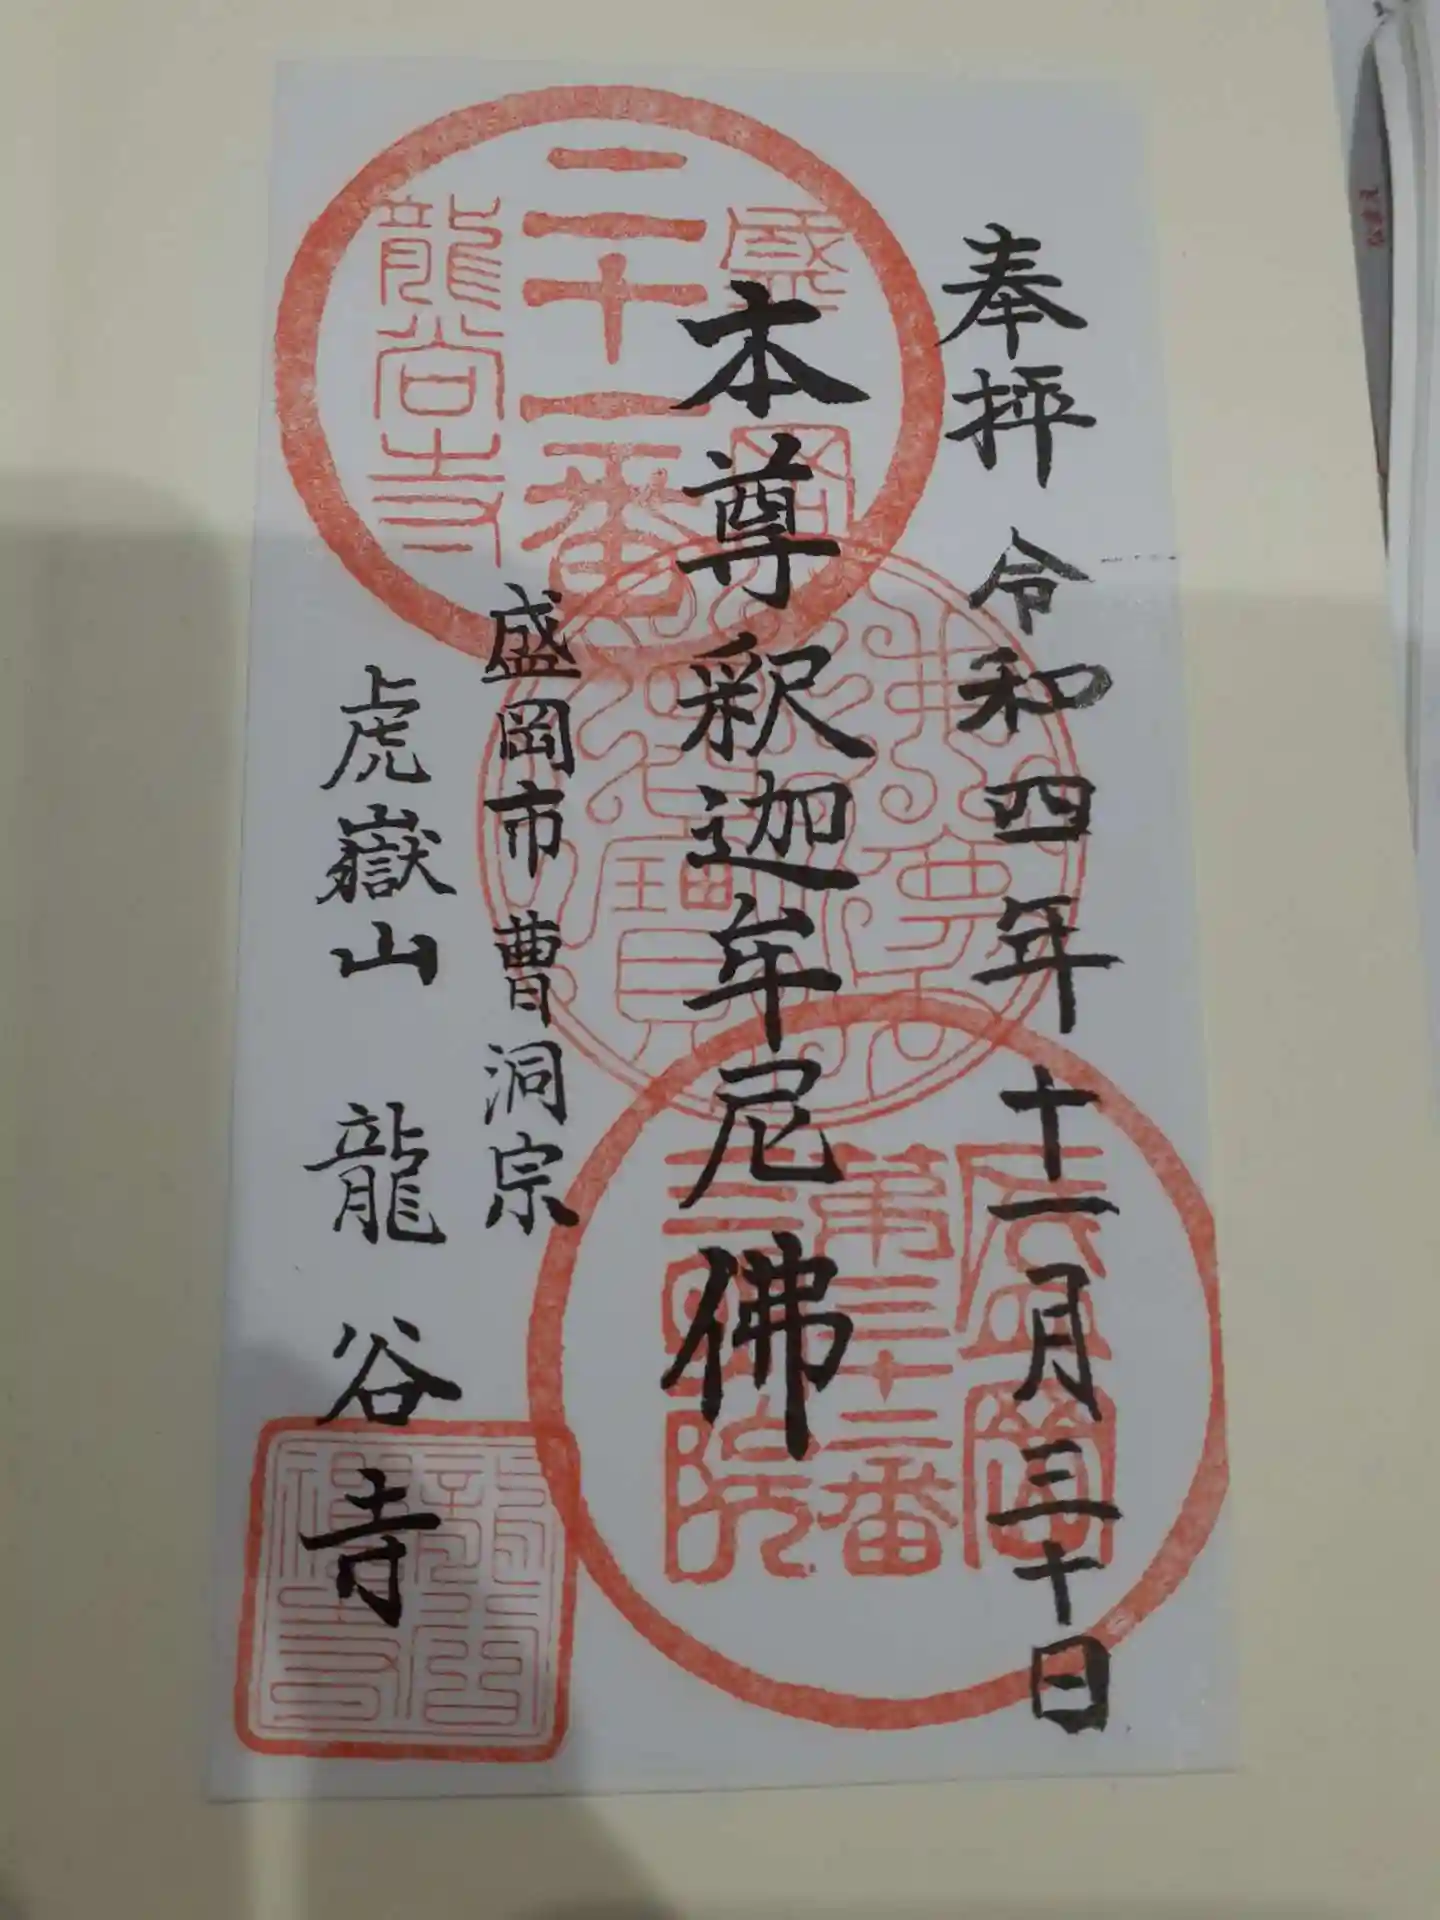 奉拝 令和四年十一月三十日
本尊釈迦牟尼佛
盛岡市 曹洞宗
虎嶽山 龍谷寺
盛岡
二十一番
龍谷寺
佛法僧寶
盛岡
第三十三番